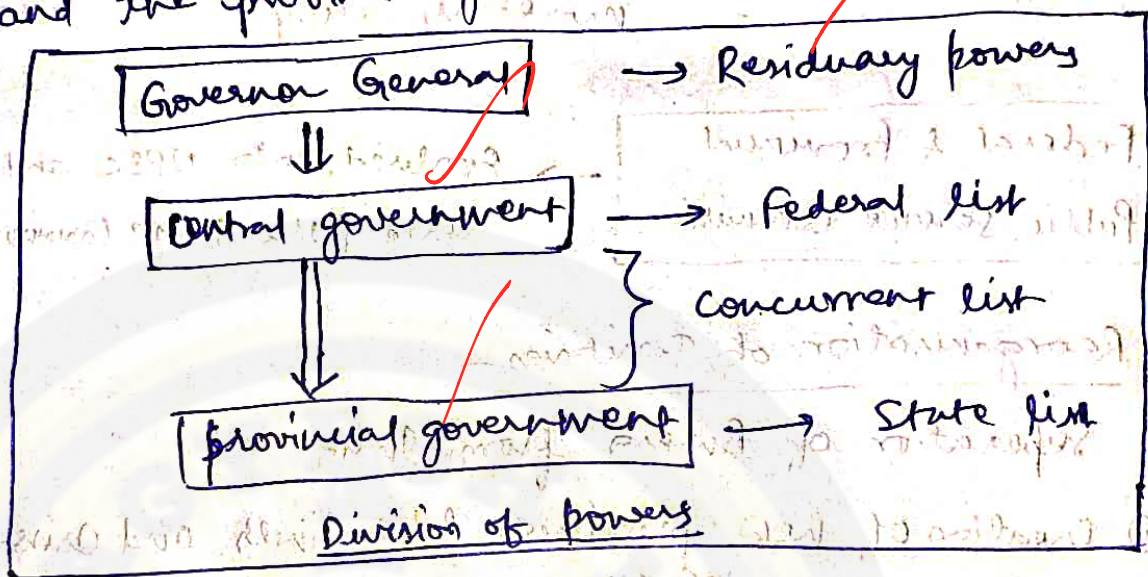 and the
Governor General → Residuary powers
central government → Federal list
concurrent list
provincial government → State list
Division of powers